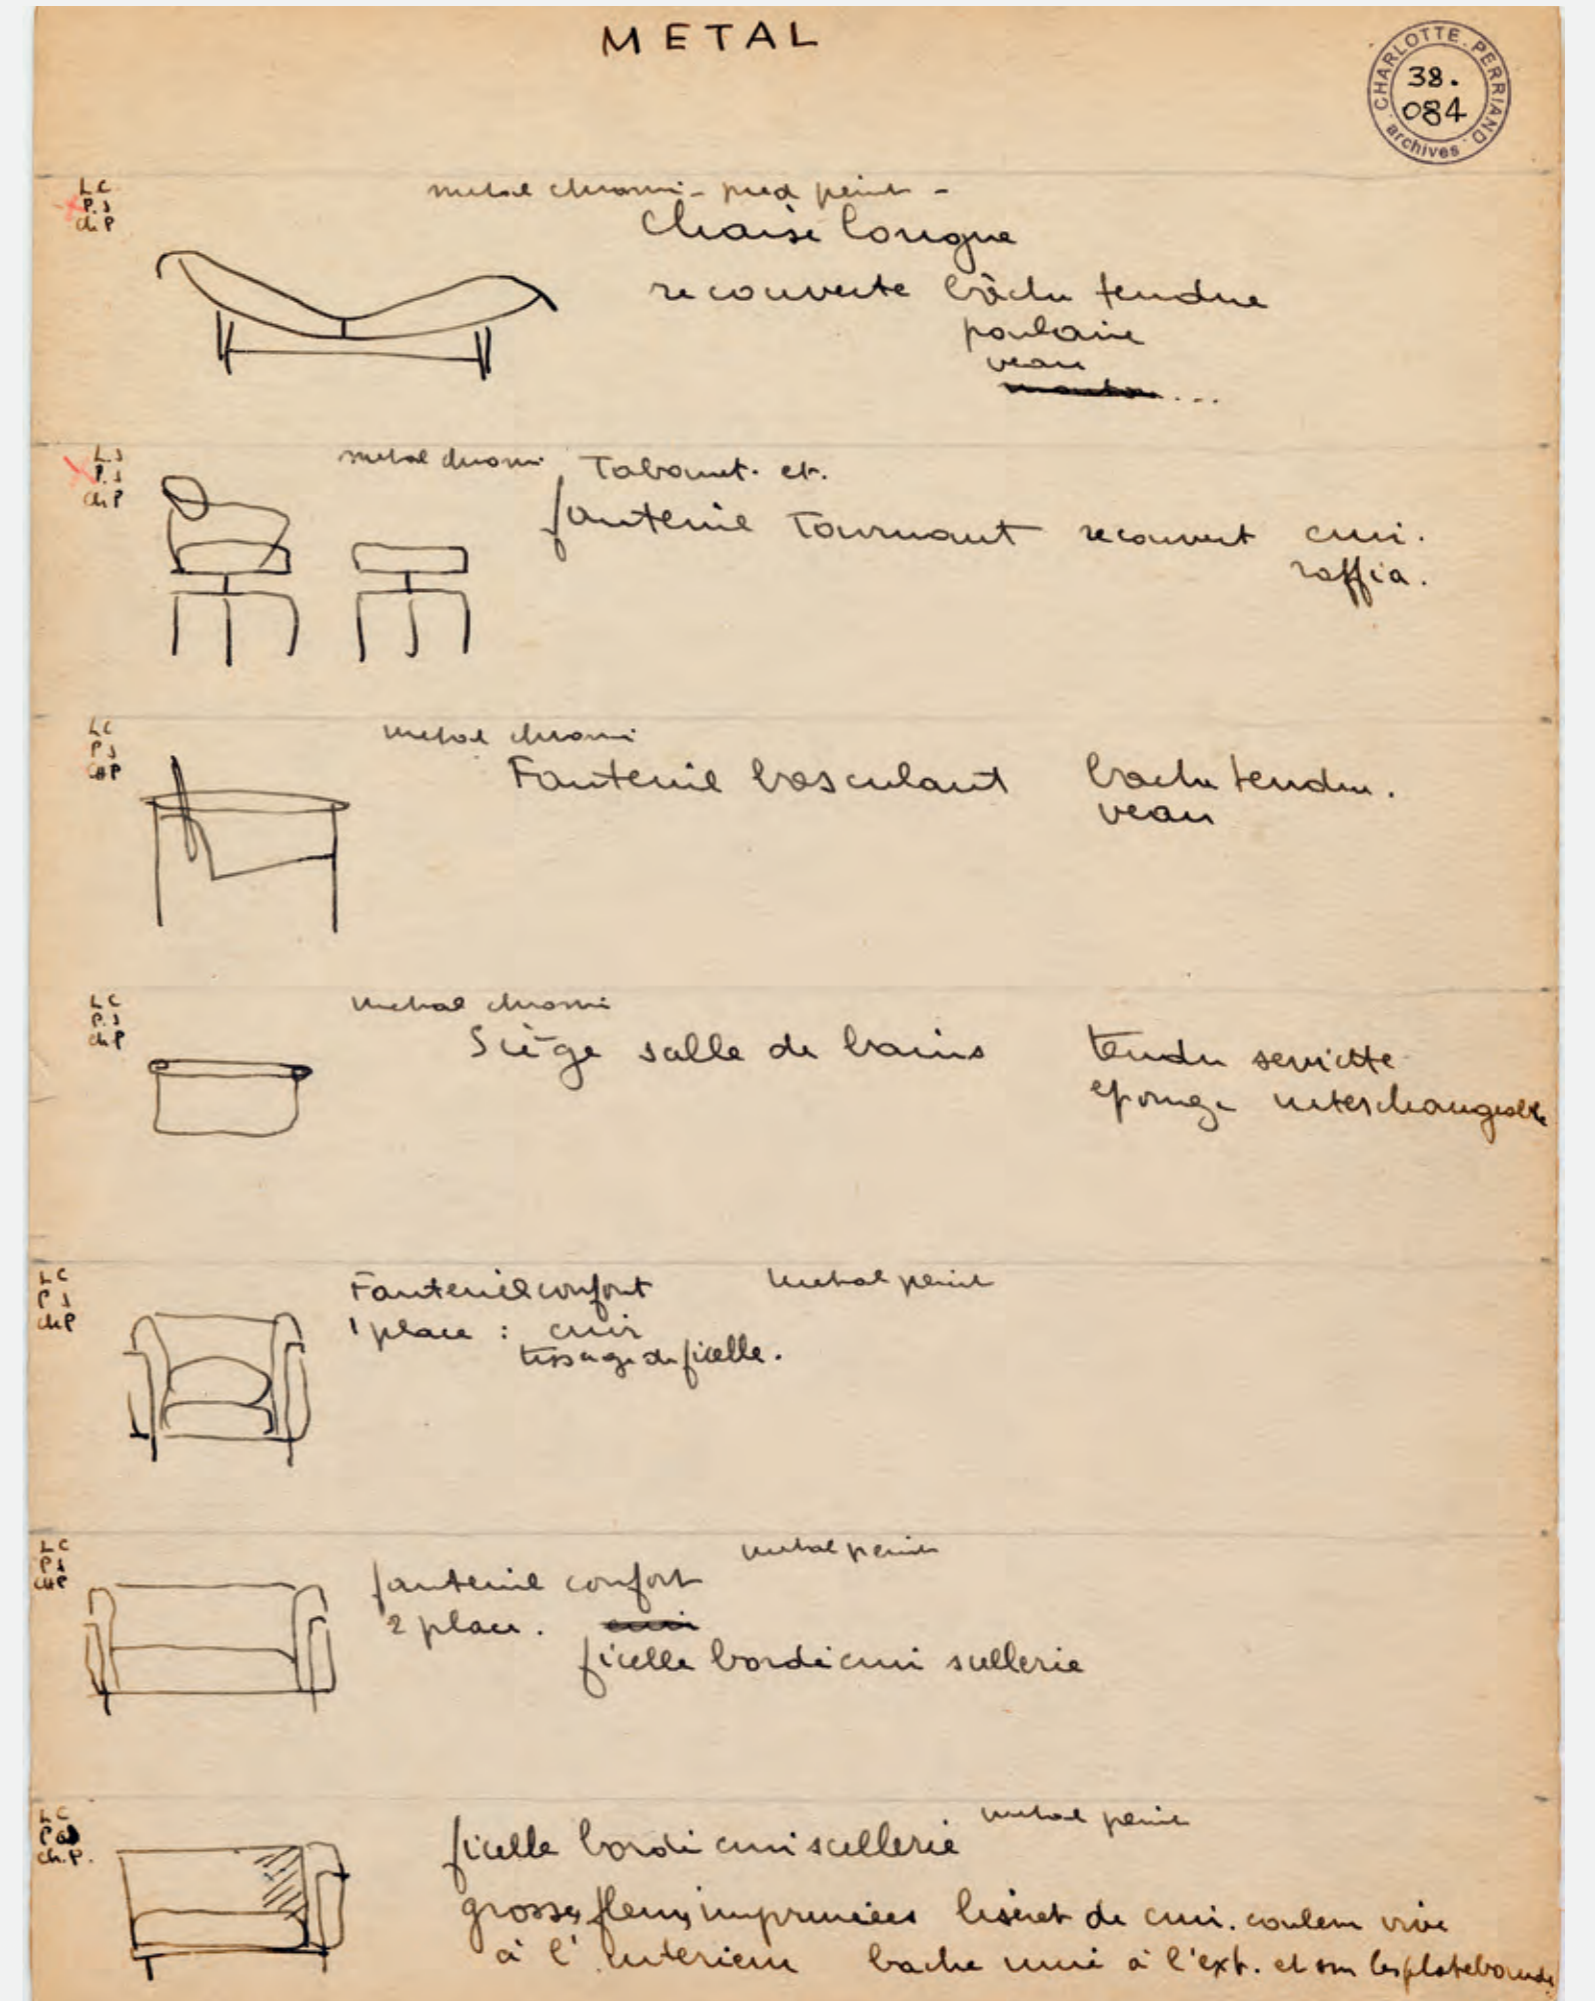 METAL
CHARLOTTE PERRIAND
38.
084
archives
LC
P.J
ch P
metal chromé - pied peint -
Chaise longue
recouverte bâche tendue
poulain
veau
mouton...
L.J
P.J
ch P
metal chromé Tabouret. et.
fauteuil tournant recouvert cuir.
raffia.
LC
PJ
CHP
metal chromé
Fauteuil basculant bache tendue.
veau
LC
P.J
ch P
metal chromé
Siège salle de bains tendu serviette
eponge interchangeable
LC
PJ
ch P
Fauteuil confort metal peint
1 place : cuir
tissage de ficelle.
LC
PJ
CHP
metal peint
fauteuil confort
2 place. cuir
ficelle bordé cuir sellerie
LC
ch.P.
metal peint
ficelle bordé cuir scellerie
grosses fleurs imprimées liséret de cuir. couleur vive
à l'interieur bache unie à l'ext. et sur les platebandes